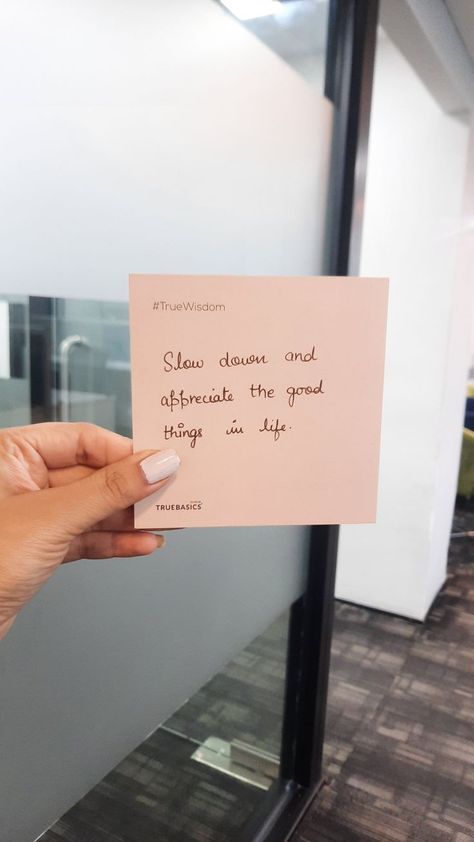 #TrueWisdom
Slow down and
appreciate the good
things in life.
TRUEBASICS